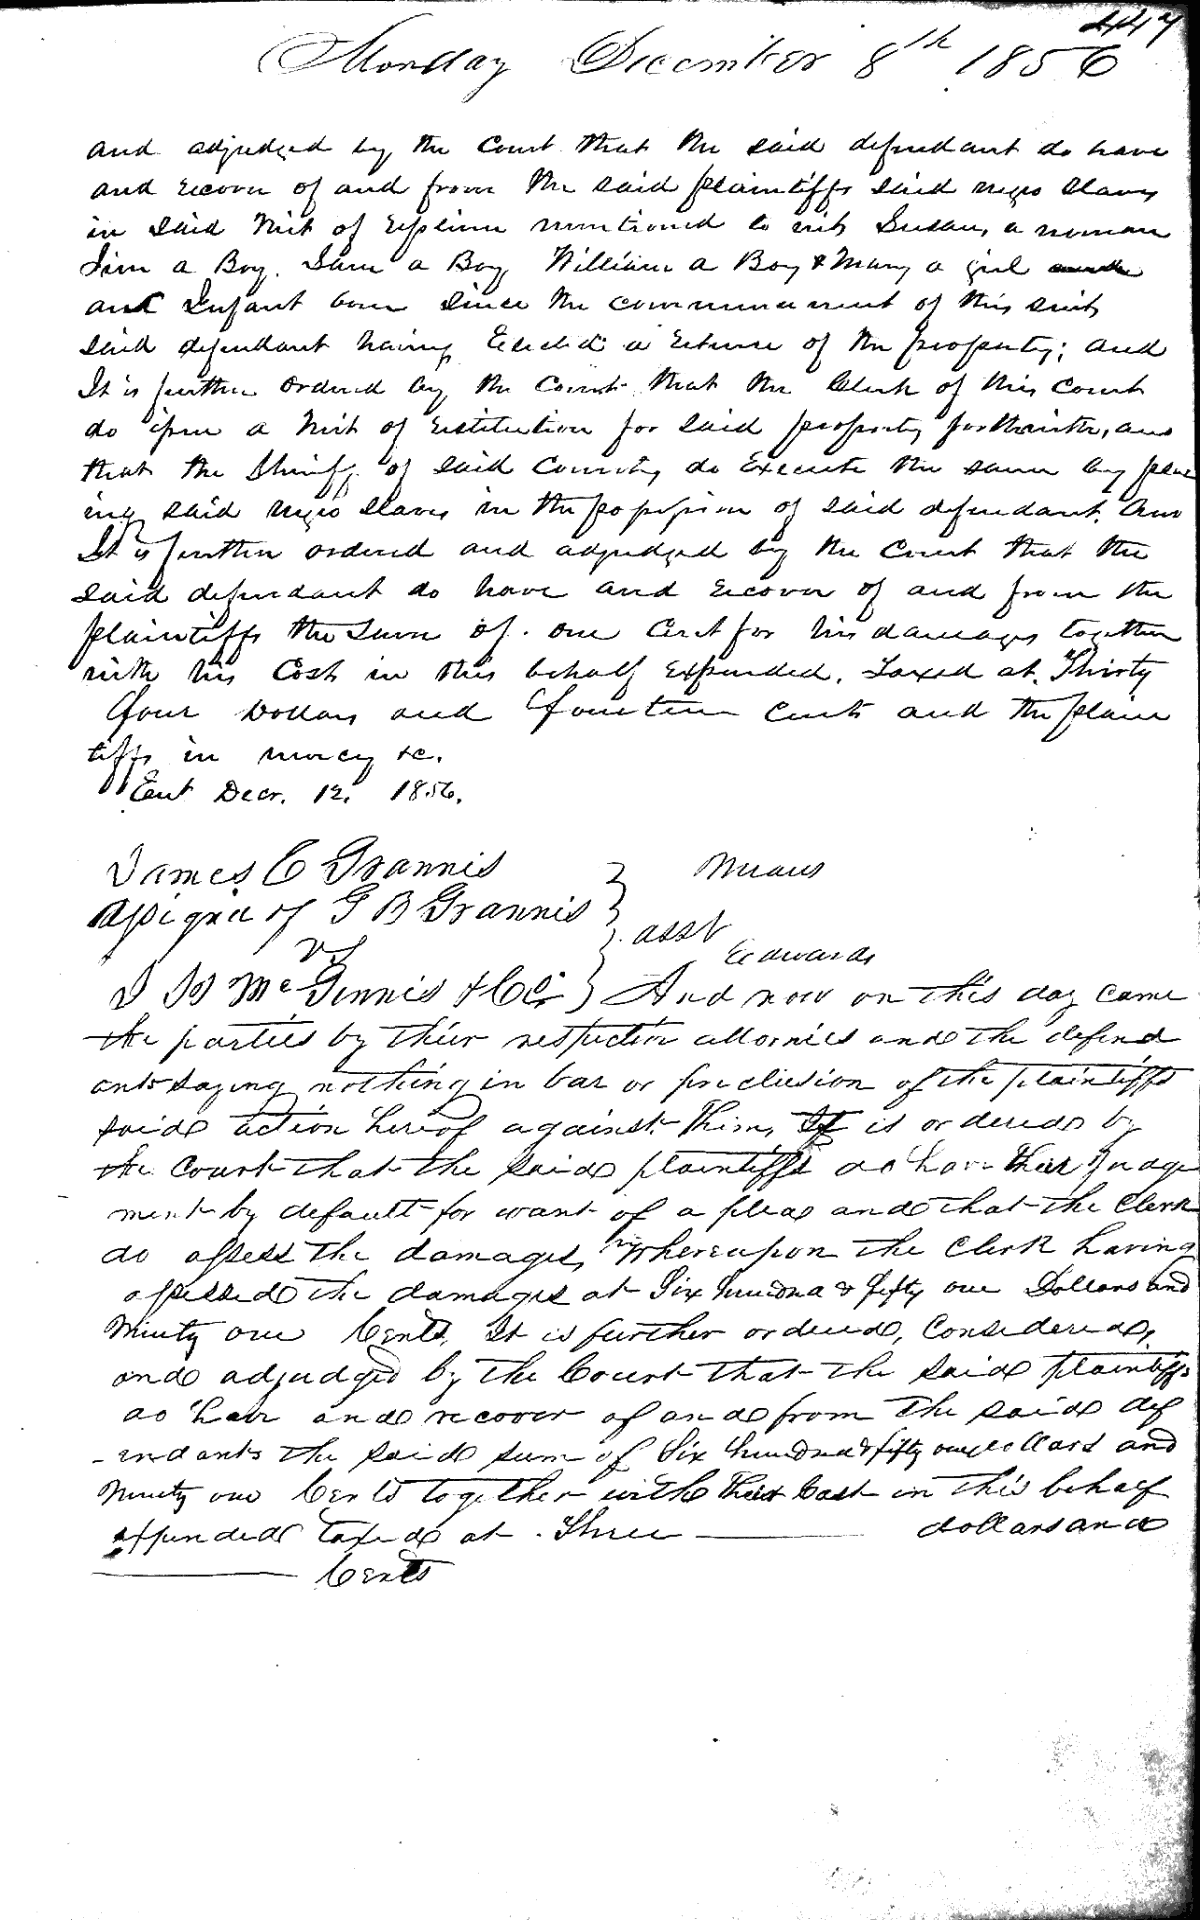 447
Monday December 8th 1856
and adjudged by the Court that the said defendant do have
and recover of and from the said plaintiffs said negro slaves
in said Writ of replevin mentioned to wit Susan, a woman
Jim a Boy. Sam a Boy William a Boy & Mary a girl
and Infant born since the commencement of this suit
said defendant having Elected a return of the property; and
It is further ordered by the Court that the Clerk of this Court
do issue a Writ of restitution for said property forthwith, and
that the Sheriff of said County do Execute the same by plac
ing said negro slaves in the possession of said defendant. And
It is further ordered and adjudged by the Court that the
said defendant do have and recover of and from the
plaintiffs the sum of one Cent for his damages together
with his Cost in this behalf Expended. Taxed at Thirty
four Dollars and fourteen Cents and the plain
tiffs in mercy &c.
Ent Decr. 12. 1856.
James C Grannis
Assignee of G B Grannis
vs
McGinnis & Co
Means
asst
Edwards
And now on this day came
the parties by their respective attornies and the defend
ants saying nothing in bar or preclusion of the plaintiffs
said action hereof against them, It is ordered by
the Court that the said plaintiffs do have their Judge
ment by default for want of a plea and that the Clerk
do assess the damages, Whereupon the Clerk having
assessed the damages at Six hundred & fifty one Dollars and
Ninety one Cents, It is further ordered, Considered,
and adjudged by the Court that the said plaintiffs
do have and recover of and from the said def
-endants the said sum of Six hundred & fifty one dollars and
Ninety one Cents together with their Cost in this behalf
expended taxed at Three ——— dollars and
——— Cents